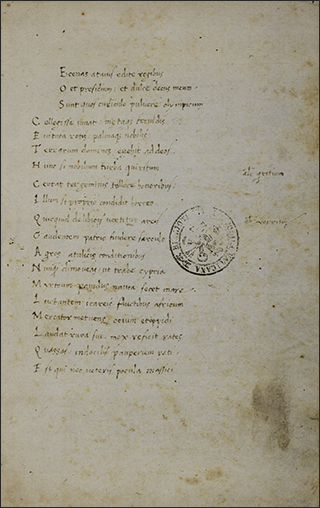 Ecenas atauis edite regibus
O et presidium: et dulce decus meum
Sunt quos curriculo puluere olympicum
Collegisse iuuat: metaq feruidis
Euitata rotis palmaq nobilis
Terrarum dominos euehit ad deos
Hunc si mobilium turba quiritum
Certat tergeminis tollere honoribus
Illum si proprio condidit horreo
Quicquid de libycis uertitur areis
Gaudentem patrios findere sarculo
Agros attalicis conditionibus
Nunq dimoueas ut trabe cypria
Martoum pauidus nauta secet mare
Luctantem icareis fluctibus africum
Mercator metuens: otium et opidi
Laudat rura sui: mox reficit rates
Quassas indocilis pauperiem pati
Est qui nec ueteris pocula massici